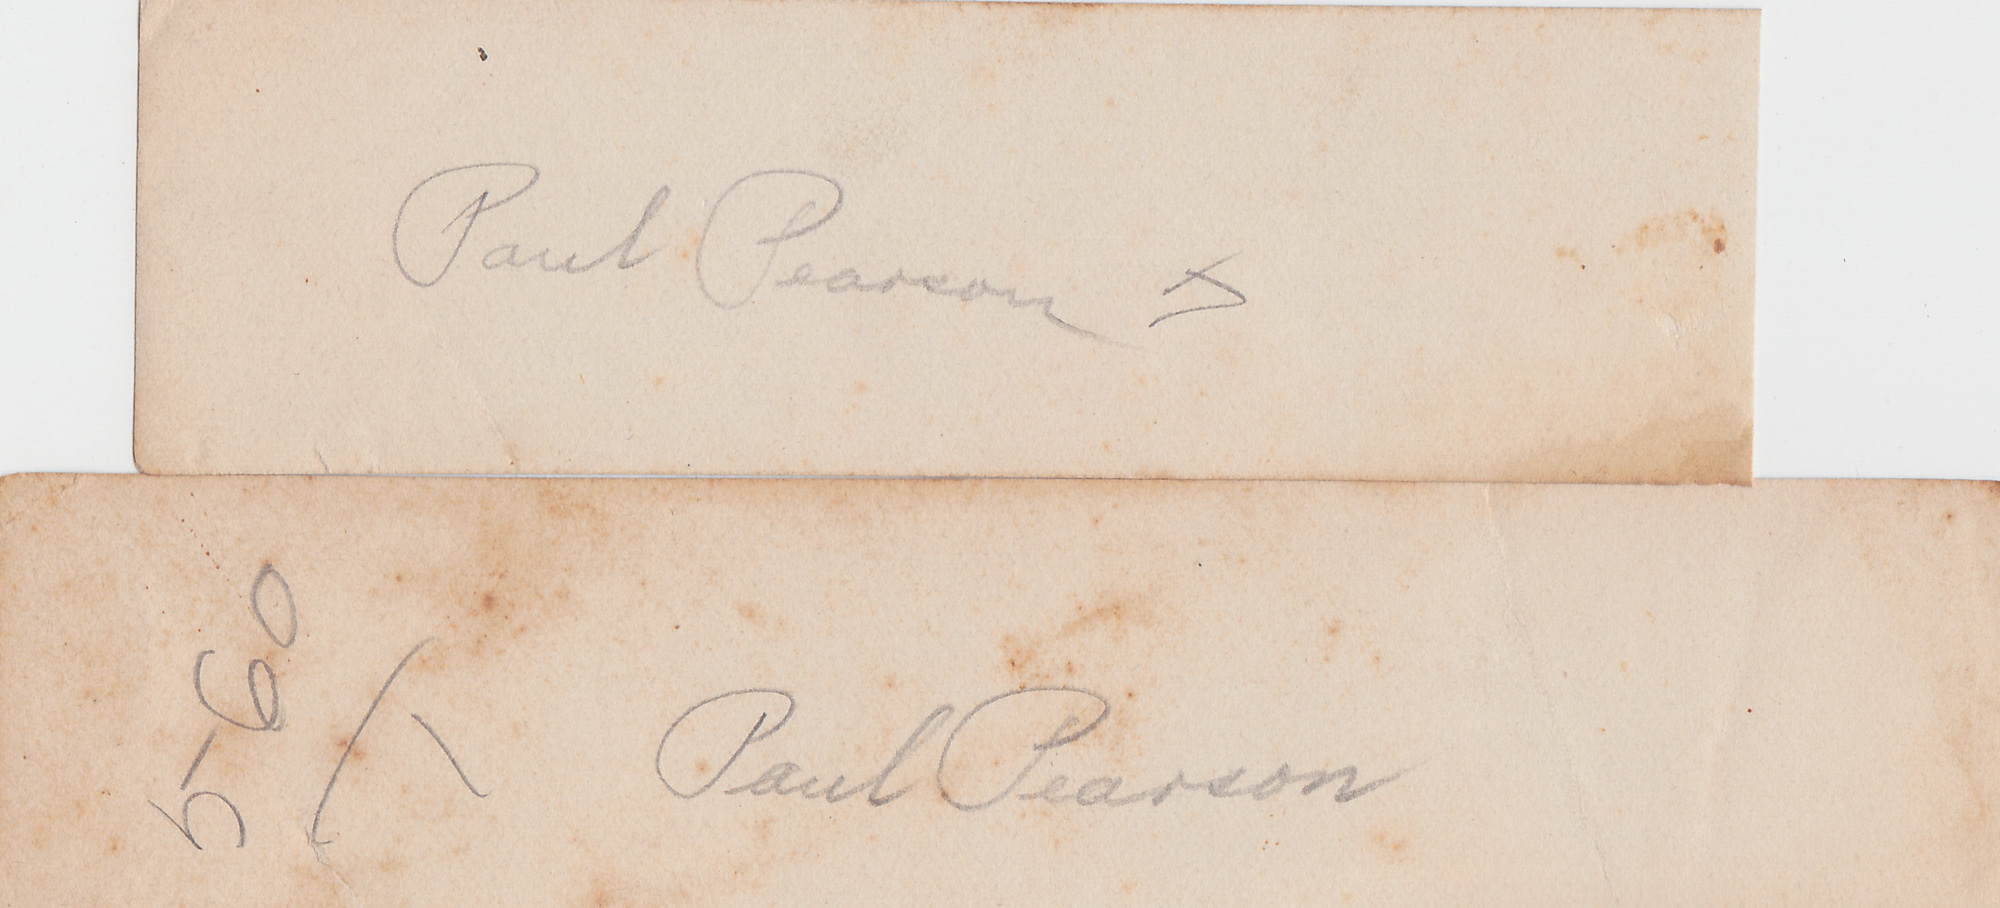 Paul Pearson
5-60
Paul Pearson